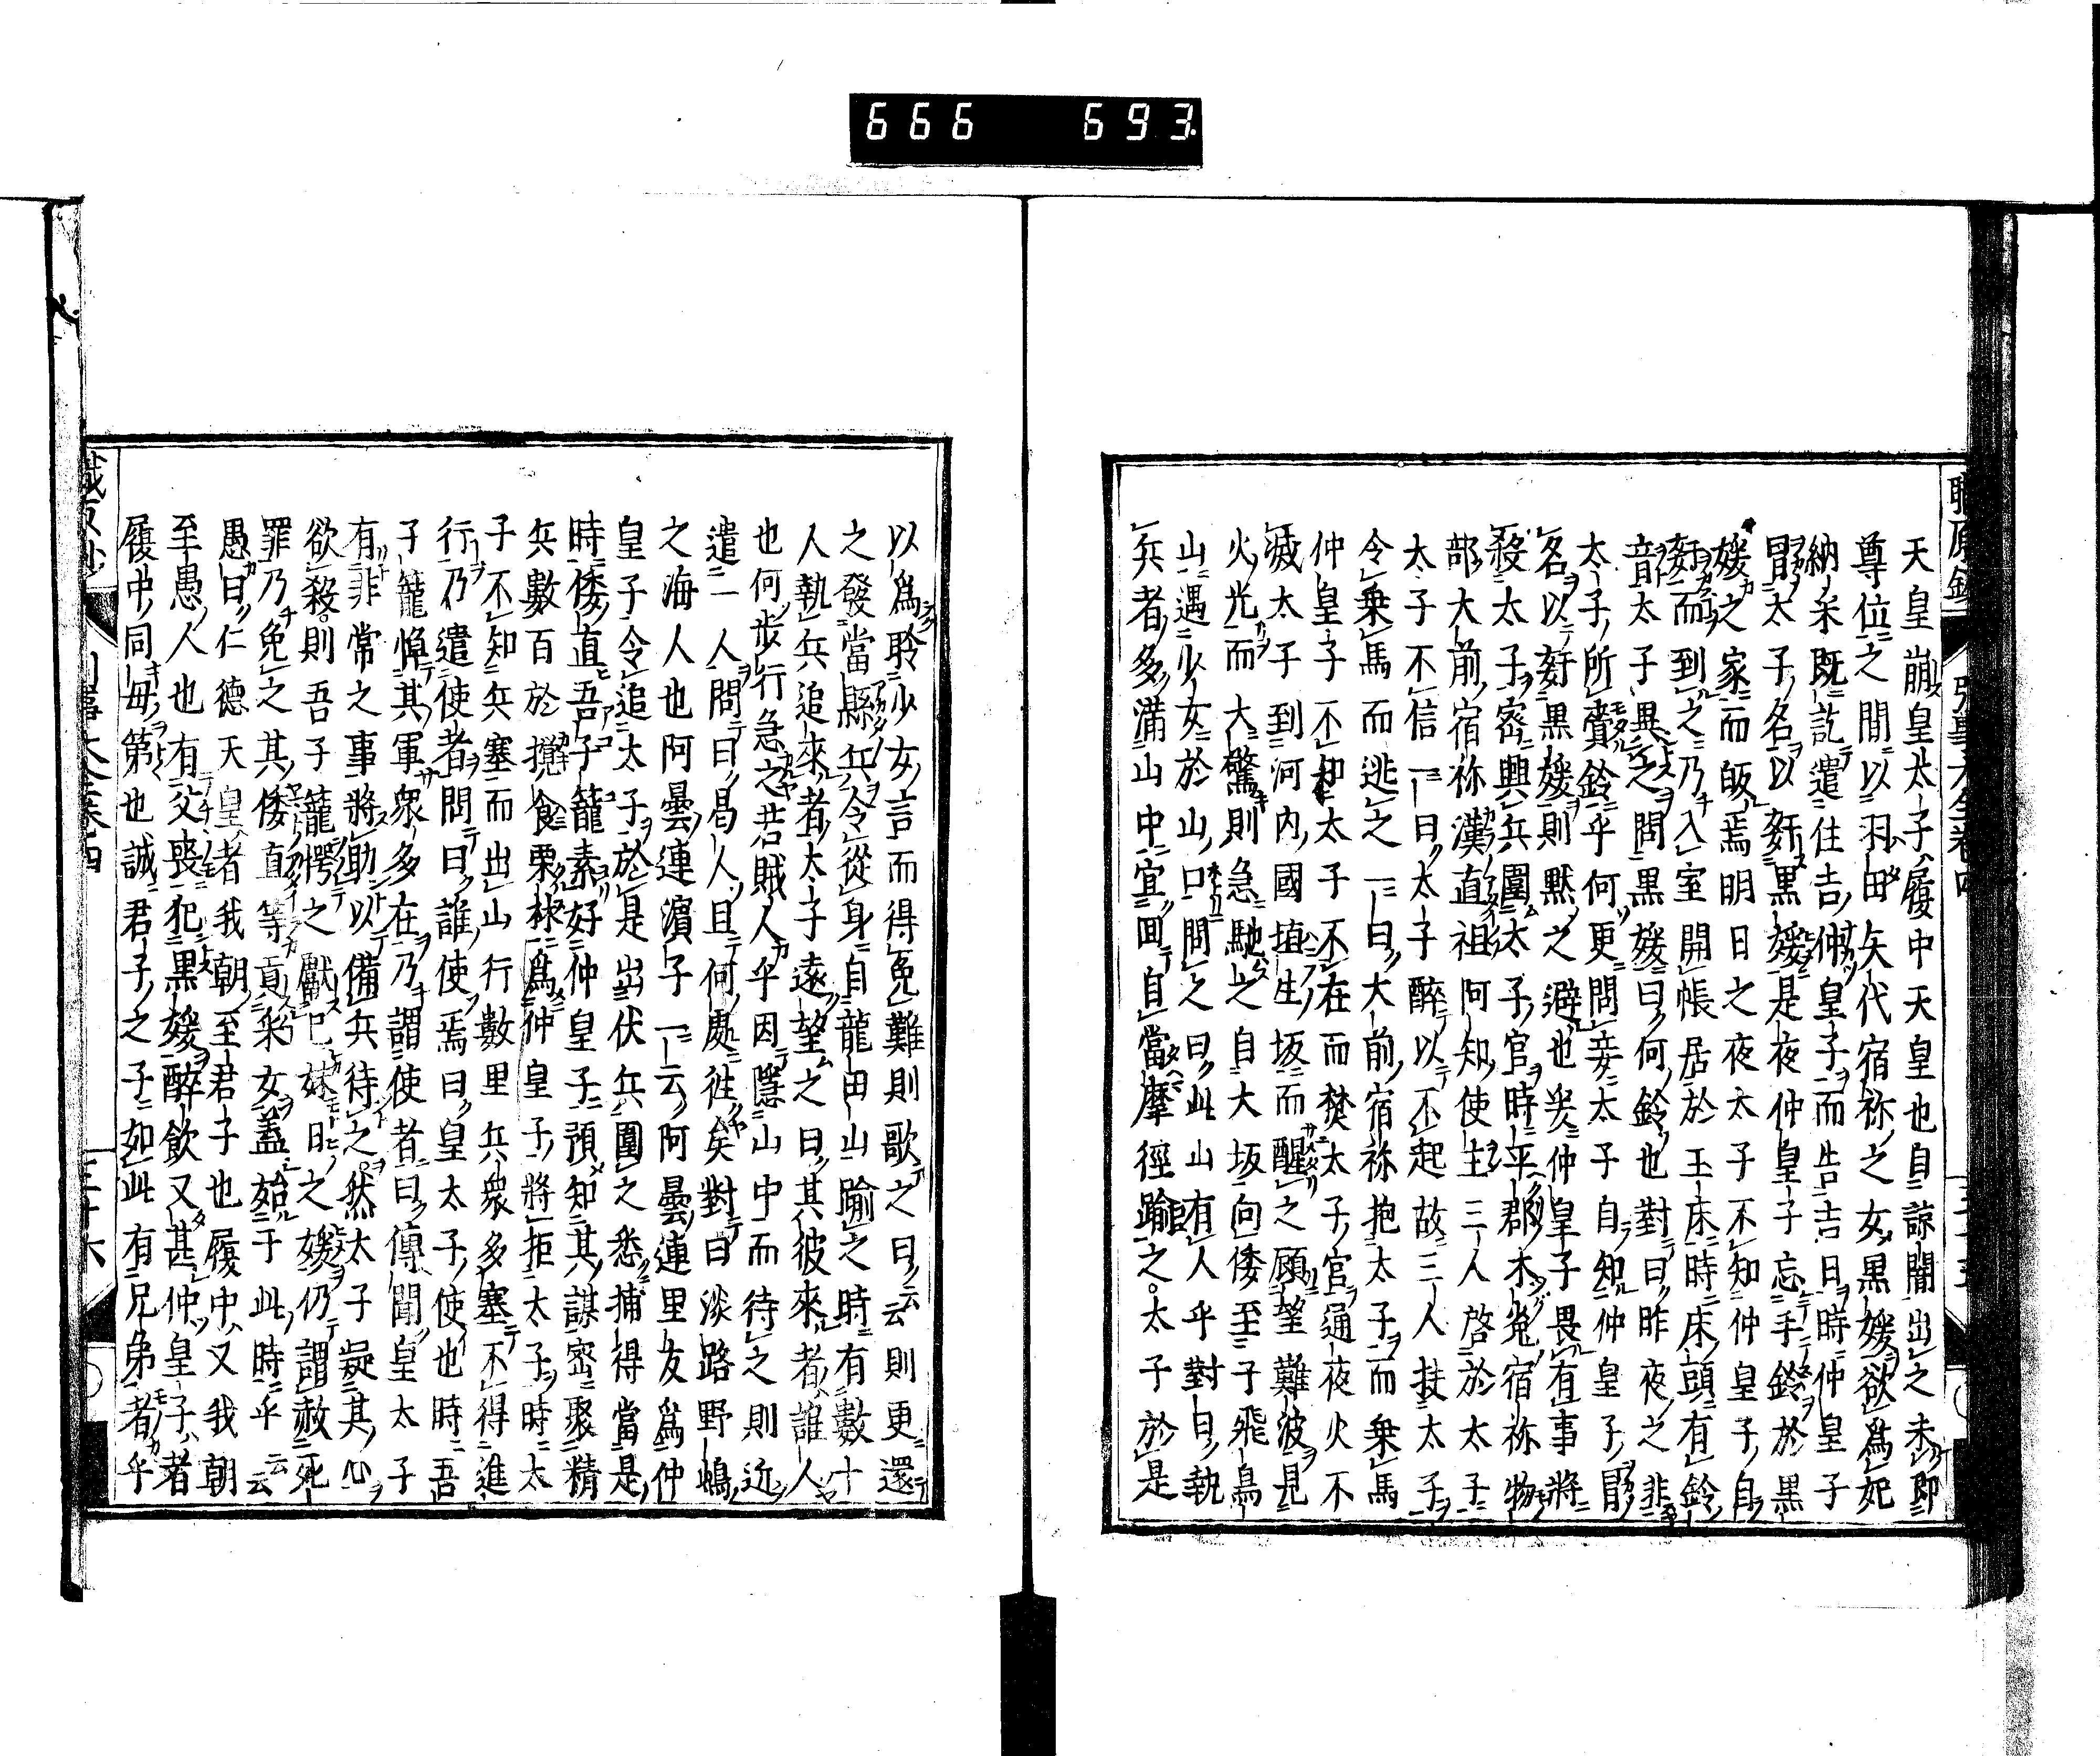 666 693
天皇崩皇太子履中天皇也自諒闇出之未即
尊位之間以羽田矢代宿祢之女黒媛欲為妃
納采既訖遣住吉仲皇子而告吉日時仲皇子
冒太子名以奸黒媛是夜仲皇子忘手鈴於黒
媛之家而皈焉明日之夜太子不知仲皇子自
奸而到之乃入室開帳居於玉床時床頭有鈴
音太子異之問黒媛曰何鈴也對曰昨夜之非
太子所賷鈴乎何更問妾太子自知仲皇子冒
名以奸黒媛則黙之避也爰仲皇子畏有事將
殺太子密興兵圍太子宮時平郡木菟宿祢物
部大前宿祢漢直祖阿知使主三人啓於太子
太子不信一曰太子醉以不起故三人扶太子
令乗馬而逃之一曰大前宿祢抱太子而乗馬
仲皇子不知太子不在而焚太子宮通夜火不
滅太子到河内國埴生坂而醒之顧望難波見
火光而大驚則急馳之自大坂向倭至于飛鳥
山遇少女於山口問之曰此山有人乎對曰執
兵者多満山中宜囬自當摩徑踰之太子於是
以為聆少女言而得免難則歌之曰云云則更還
之發當縣兵令從身自龍田山踰之時有數十
人執兵追來者太子遠望之曰其彼來者誰人
也何歩行急之若賊人乎因隱山中而待之則近
遣一人問曰曷人且何處往矣對曰淡路野嶋
之海人也阿曇連濱子一云阿曇連黒友為仲
皇子令追太子於是出伏兵圍之悉捕得當是
時倭直吾子籠素好仲皇子預知其謀密聚精
兵數百於攪食栗林為仲皇子將拒太子時太
子不知兵塞而出山行數里兵衆多塞不得進
行乃遣使者問曰誰使焉曰皇太子使也時吾
子籠憚其軍衆多在乃謂使者曰傳聞皇太子
有非常之事將助以備兵待之然太子疑其心
欲殺則吾子籠愕之獻己妹日之媛仍謂赦死
罪乃免之其倭直等貢采女蓋始于此時乎云云
愚曰仁德天皇者我朝至君子也履中又我朝
至愚人也有父喪犯黒媛醉飲又甚仲皇子者
履中同母第也誠君子之子如此有兄弟者乎